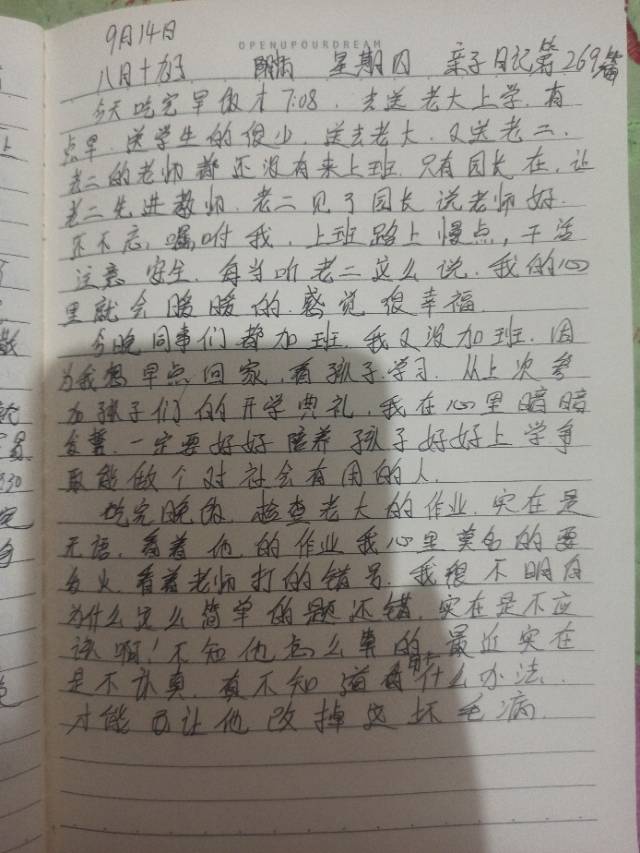 9月14日
OPENUPOURDREAM
八月十九 阴雨 星期四 亲子日记第269篇
今天吃完早饭才7:08.去送老大上学.有
点早.送学生的很少.送去老大.又送老二.
老二的老师都还没有来上班.只有园长在,让
老二先进教师.老二见了园长说老师好.
还不忘,嘱咐我,上班路上慢点,干活
注意安全.每当听老二这么说.我的心
里就会暖暖的.感觉很幸福.
今晚同事们都加班.我又没加班.因
为我想早点回家,看孩子学习.从上次参
加孩子们的开学典礼,我在心里暗暗
发誓.一定要好好陪养孩子好好上学争
取能做个对社会有用的人.
吃完晚饭.检查老大的作业.实在是
无语.看着他的作业我心里莫名的要
发火.看着老师打的错号.我很不明白
为什么这么简单的题还错,实在是不应
该啊!不知他怎么来的.最近实在
是不认真.有不知道有什么办法.
才能让他改掉这坏毛病.